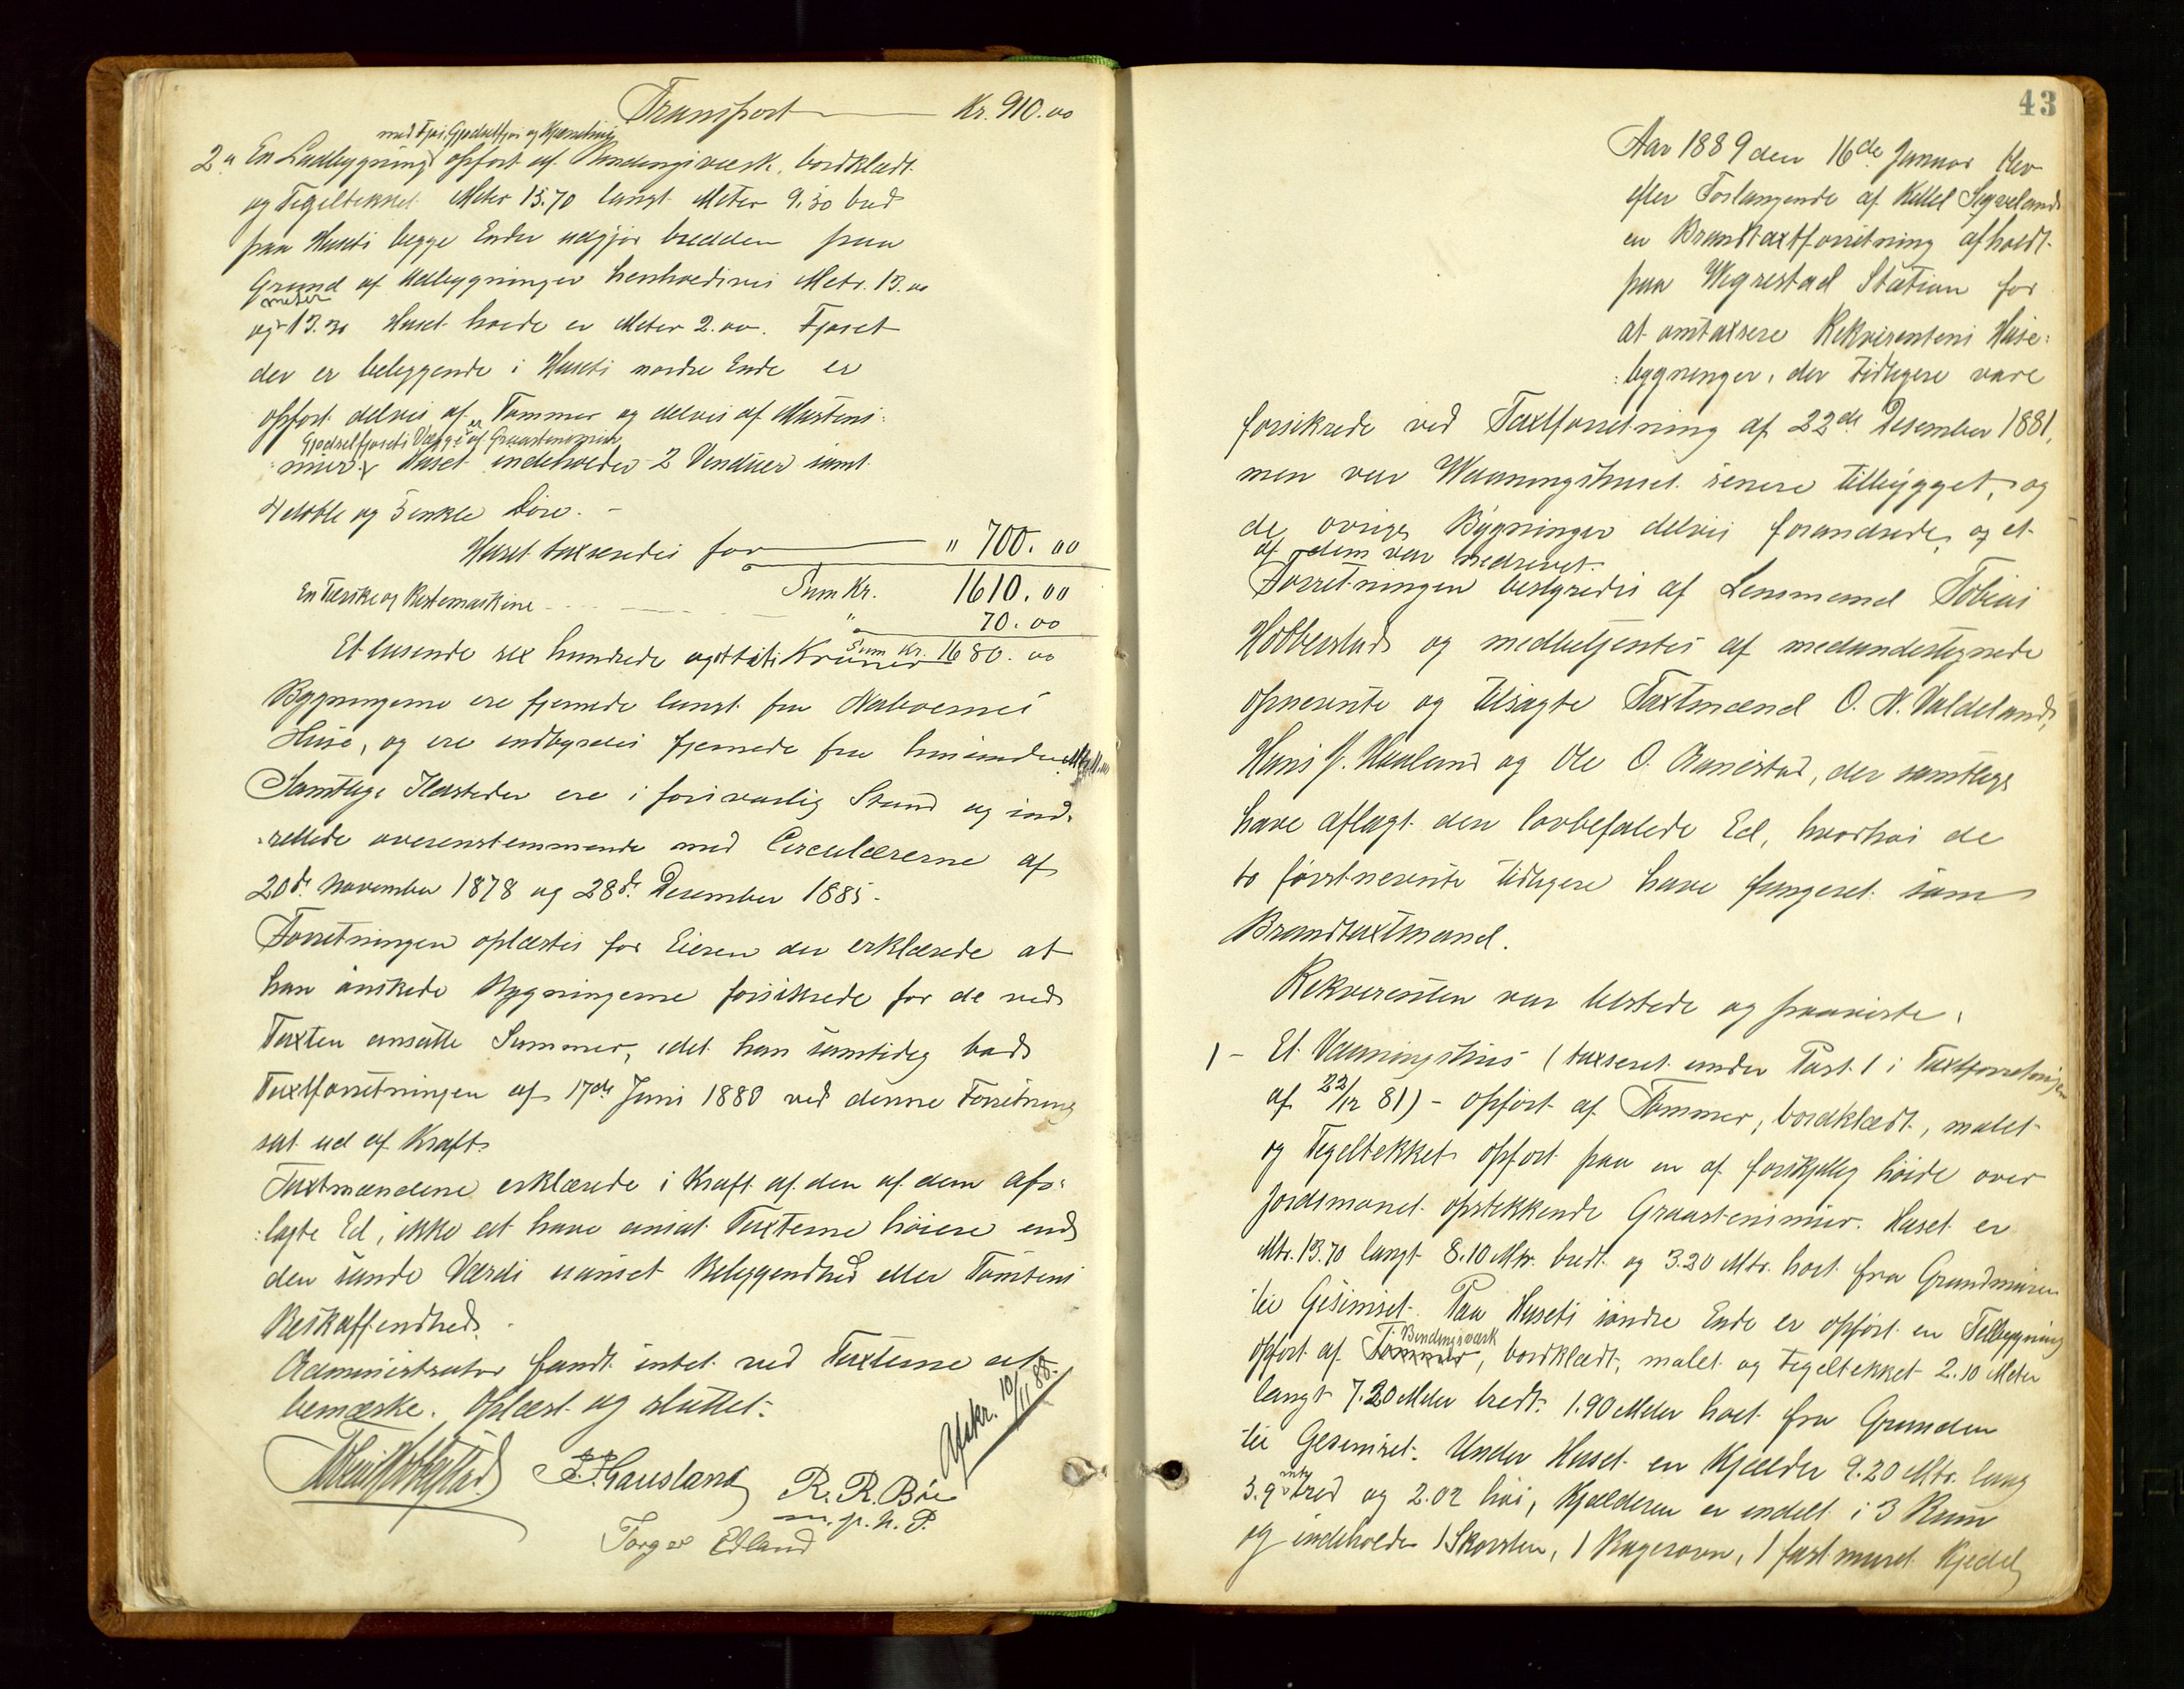 Transport Kr. 910.00
med Fjøs, Gjødselfjøs og
2a En Ladbygning opført af Bindingsværk, bordklædt
og Tegeltekket Meter 15.70 langt Meter 9.30 bred
paa Husets begge Ender udgjør bredden paa
Grund af Udbygninger henholdsvis Metr. 13.00
meter
og 13.30 Huset høide er Meter 2.00. Fjøset
der er beliggende i Husets nordre Ende er
opført delvis af Tømmer og delvis af Murstens:
Gjødselfjøsets Vægge er af Graastensmur
:mur. Huset indeholder 2 Vinduer samt
4 doble og 5 enkle Døre. -
Huset taxseredes for " 700.00
Sum Kr. 1610.00
En Tærske og Rystemaskine " 70.00
Sum Kr. 1680.00
Et tusende sex hundrede og otteti Kroner
Bygningerne ere fjernede langt fra Naboernes
Huse, og ere indbyrdes fjernede fra hinanden
Samtlige Ildsteder ere i forsvarlig Stand og ind:
:rettede overensstemmende med Circulærerne af
20de November 1878 og 28de Desember 1885.
Forretningen oplæstes for Eieren der erklærede at
han ønskede Bygningerne forsikrede for de ved
Taxten ansatte Summer, idet han samtidig bad
Taxtforretningen af 17de Juni 1880 ved denne Forretning
sat ud af Kraft.
Taxtmændene erklærede i Kraft af den af dem af:
:lagte Ed, ikke at have ansat Taxterne høiere end
den sande Værdi uanset Beliggendhed eller Tomtens
Beskaffendhed.
Administrator fandt intet ved Taxterne at
bemærke. Oplæst og sluttet.
Afskr. 10/11 88.
Tobias Hobberstad J. J. Gausland R. R. Bø
m. p. n. P.
Torger Edland
43
Aar 1889 den 16de Januar blev
efter Forlangende af Kittel Sigveland
en Brandtaxtforretning afholdt
paa Vigrestad Station for
at omtaxsere Rekvirentens Huse:
:bygninger, der tidligere vare
forsikrede ved Taxtforretning af 22de Desember 1881,
men var Waaningshuset senere tilbygget, og
de øvrige Bygninger delvis forandrede, og et
af dem var nedrevet.
Forretningen bestyredes af Lensmand Tobias
Hobberstad og medbetjentes af medundertegnede
opnevnte og tilsagte Taxtmænd O. N. Valdeland,
Hans J. Haaland og Ole O. Aanestad, der samtlige
have aflagt den lovbefalede Ed, hvorhos de
to førstnevnte tidligere have fungeret som
Brandtaxtmænd.
Rekvirenten var tilstede og paaviste:
1 - Et Vaaningshus (taxseret under Post 1 i Taxtforretningen
af 22/12 81) - opført af Tømmer, bordklædt, malet
og Tegeltekket opført paa en af forskjellig høide over
Jordsmonet opstekkende Graastensmur. Huset er
Mtr. 13.70 langt 8.10 Mtr. bredt og 3.20 Mtr. høit fra Grundmuren
til Gesimset. Paa Husets søndre Ende er opført en Tilbygning
Bindingsværk
opført af Tømmer, bordklædt, malet og tegeltekket 2.10 Meter
langt 7.20 Meter bredt. 1.90 Meter høit fra Grunden
til Gesimset. Under Huset en Kjælder 9.20 Mtr. lang
mtr
3.90 bred og 2.02 høi, Kjælderen er indelt i 3 Rum
og indeholder 1 Skorsten, 1 Bagerovn, 1 fast muret Kjedel